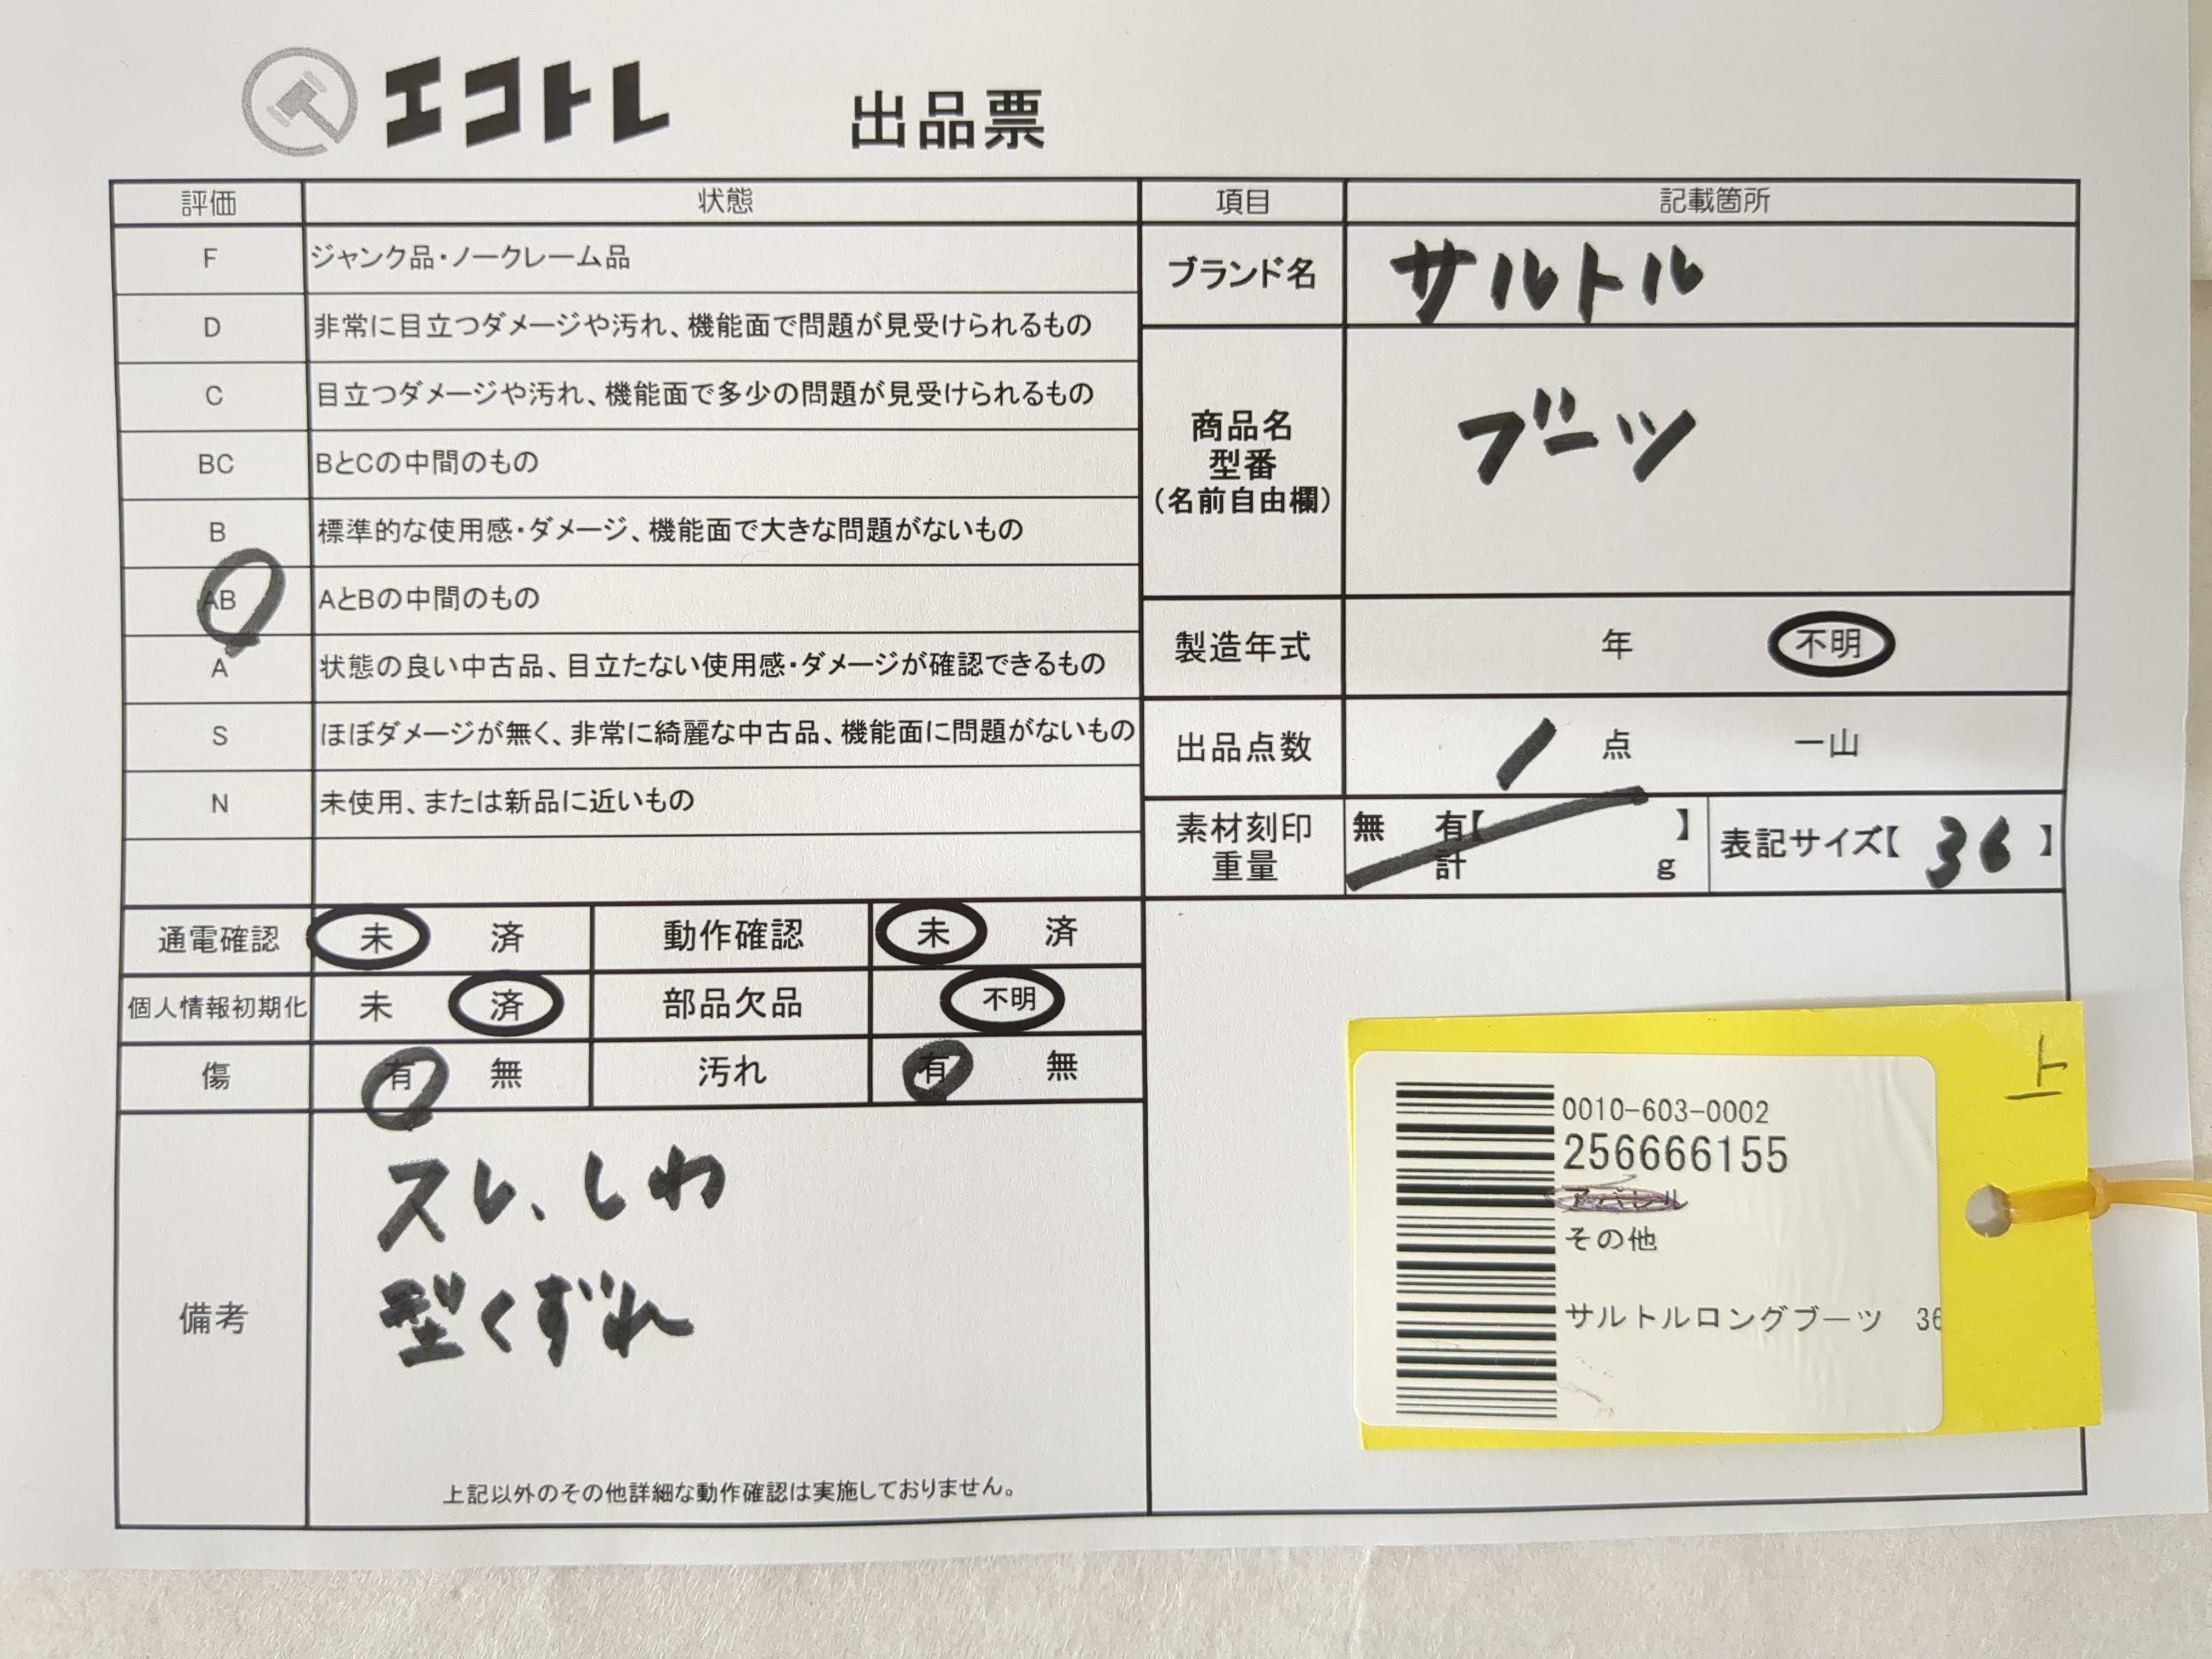 エコトレ
出品票
評価 状態
F ジャンク品・ノークレーム品
D 非常に目立つダメージや汚れ、機能面で問題が見受けられるもの
C 目立つダメージや汚れ、機能面で多少の問題が見受けられるもの
BC BとCの中間のもの
B 標準的な使用感・ダメージ、機能面で大きな問題がないもの
AB AとBの中間のもの
A 状態の良い中古品、目立たない使用感・ダメージが確認できるもの
S ほぼダメージが無く、非常に綺麗な中古品、機能面に問題がないもの
N 未使用、または新品に近いもの
項目 記載箇所
ブランド名 サルトル
商品名
型番
(名前自由欄)
ブーツ
製造年式 年 不明
出品点数 1 点 一山
素材刻印
重量
無 有【 】
計 g
表記サイズ【 36 】
通電確認 未 済 動作確認 未 済
個人情報初期化 未 済 部品欠品 不明
傷 有 無 汚れ 有 無
備考
スレ、しわ
型くずれ
上記以外のその他詳細な動作確認は実施しておりません。
上
0010-603-0002
256666155
アパレル
その他
サルトルロングブーツ 36